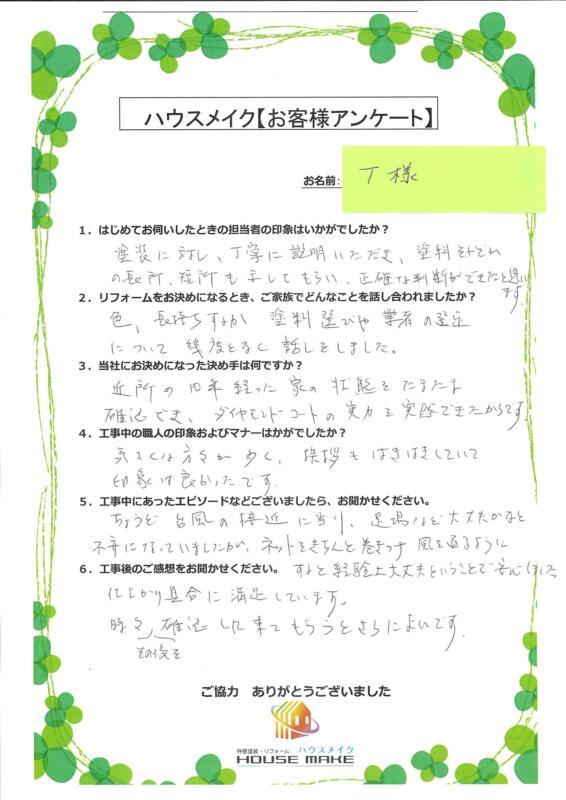 ハウスメイク【お客様アンケート】
お名前: T 様
1. はじめてお伺いしたときの担当者の印象はいかがでしたか?
塗装に対し、丁寧に説明いただき、塗料それぞれ
の長所、短所も示してもらい、正確な判断ができたと思います。
2. リフォームをお決めになるとき、ご家族でどんなことを話し合われましたか?
色、長持ちするか 塗料選びや業者の選定
について幾度となく話しをしました。
3. 当社にお決めになった決め手は何ですか?
近所の10年経った家の状態をたまたま
確認でき、ダイヤモンドコートの実力を実感できたからです
4. 工事中の職人の印象およびマナーはかがでしたか?
気さくな方々が多く、挨拶もはきはきしていて
印象は良かったです。
5. 工事中にあったエピソードなどございましたら、お聞かせください。
ちょうど台風の接近に当り、足場など大丈夫かなと
不安になっていましたが、ネットをきちんと巻きつけ風を通るように
6. 工事後のご感想をお聞かせください。
すると経験上大丈夫ということで安心しました
仕上がり具合に満足しています。
時々、確認しに来てもらうとさらによいです。
その後を
ご協力 ありがとうございました
外壁塗装・リフォーム ハウスメイク
HOUSE MAKE